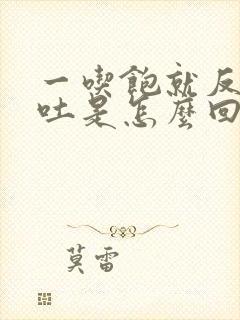 一喫飽就反
吐是怎麼回
莫雷